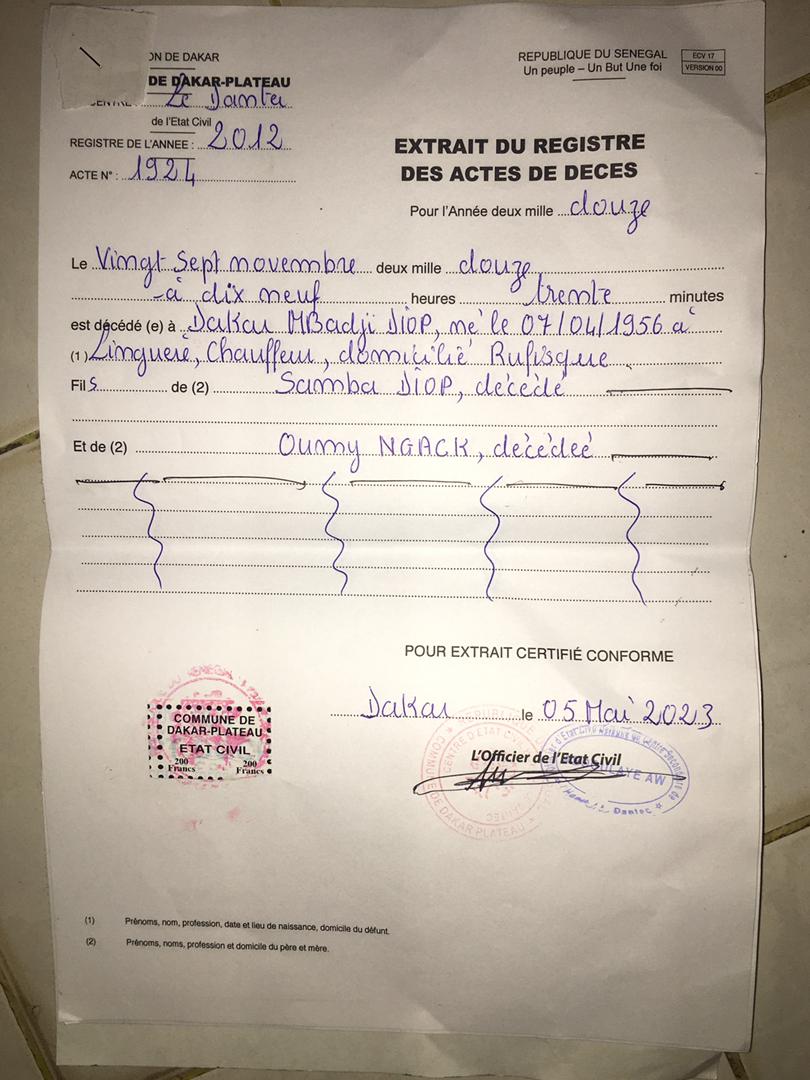 ON DE DAKAR
DE DAKAR-PLATEAU
CENTRE : Le Dantec
de l'Etat Civil
REGISTRE DE L'ANNEE : 2012
ACTE N° : 1924
REPUBLIQUE DU SENEGAL
Un peuple – Un But Une foi
ECV 17
VERSION 00
EXTRAIT DU REGISTRE
DES ACTES DE DECES
Pour l'Année deux mille douze
Le Vingt Sept novembre deux mille douze
à dix neuf heures trente minutes
est décédé (e) à Dakar MBadji DIOP, né le 07/04/1956 à
(1) Linguère, Chauffeur, domicilié Rufisque
Fils de (2) Samba DIOP, décédé
Et de (2) Oumy NGACK, décédeé
POUR EXTRAIT CERTIFIÉ CONFORME
Dakar le 05 Mai 2023
COMMUNE DE
DAKAR-PLATEAU
ETAT CIVIL
200 Francs 200 Francs
L'Officier de l'Etat Civil
COMMUNE DE DAKAR PLATEAU
CENTRE D'ETAT CIVIL
LAYE AW
Dantec
(1) Prénoms, nom, profession, date et lieu de naissance, domicile du défunt.
(2) Prénoms, noms, profession et domicile du père et mère.